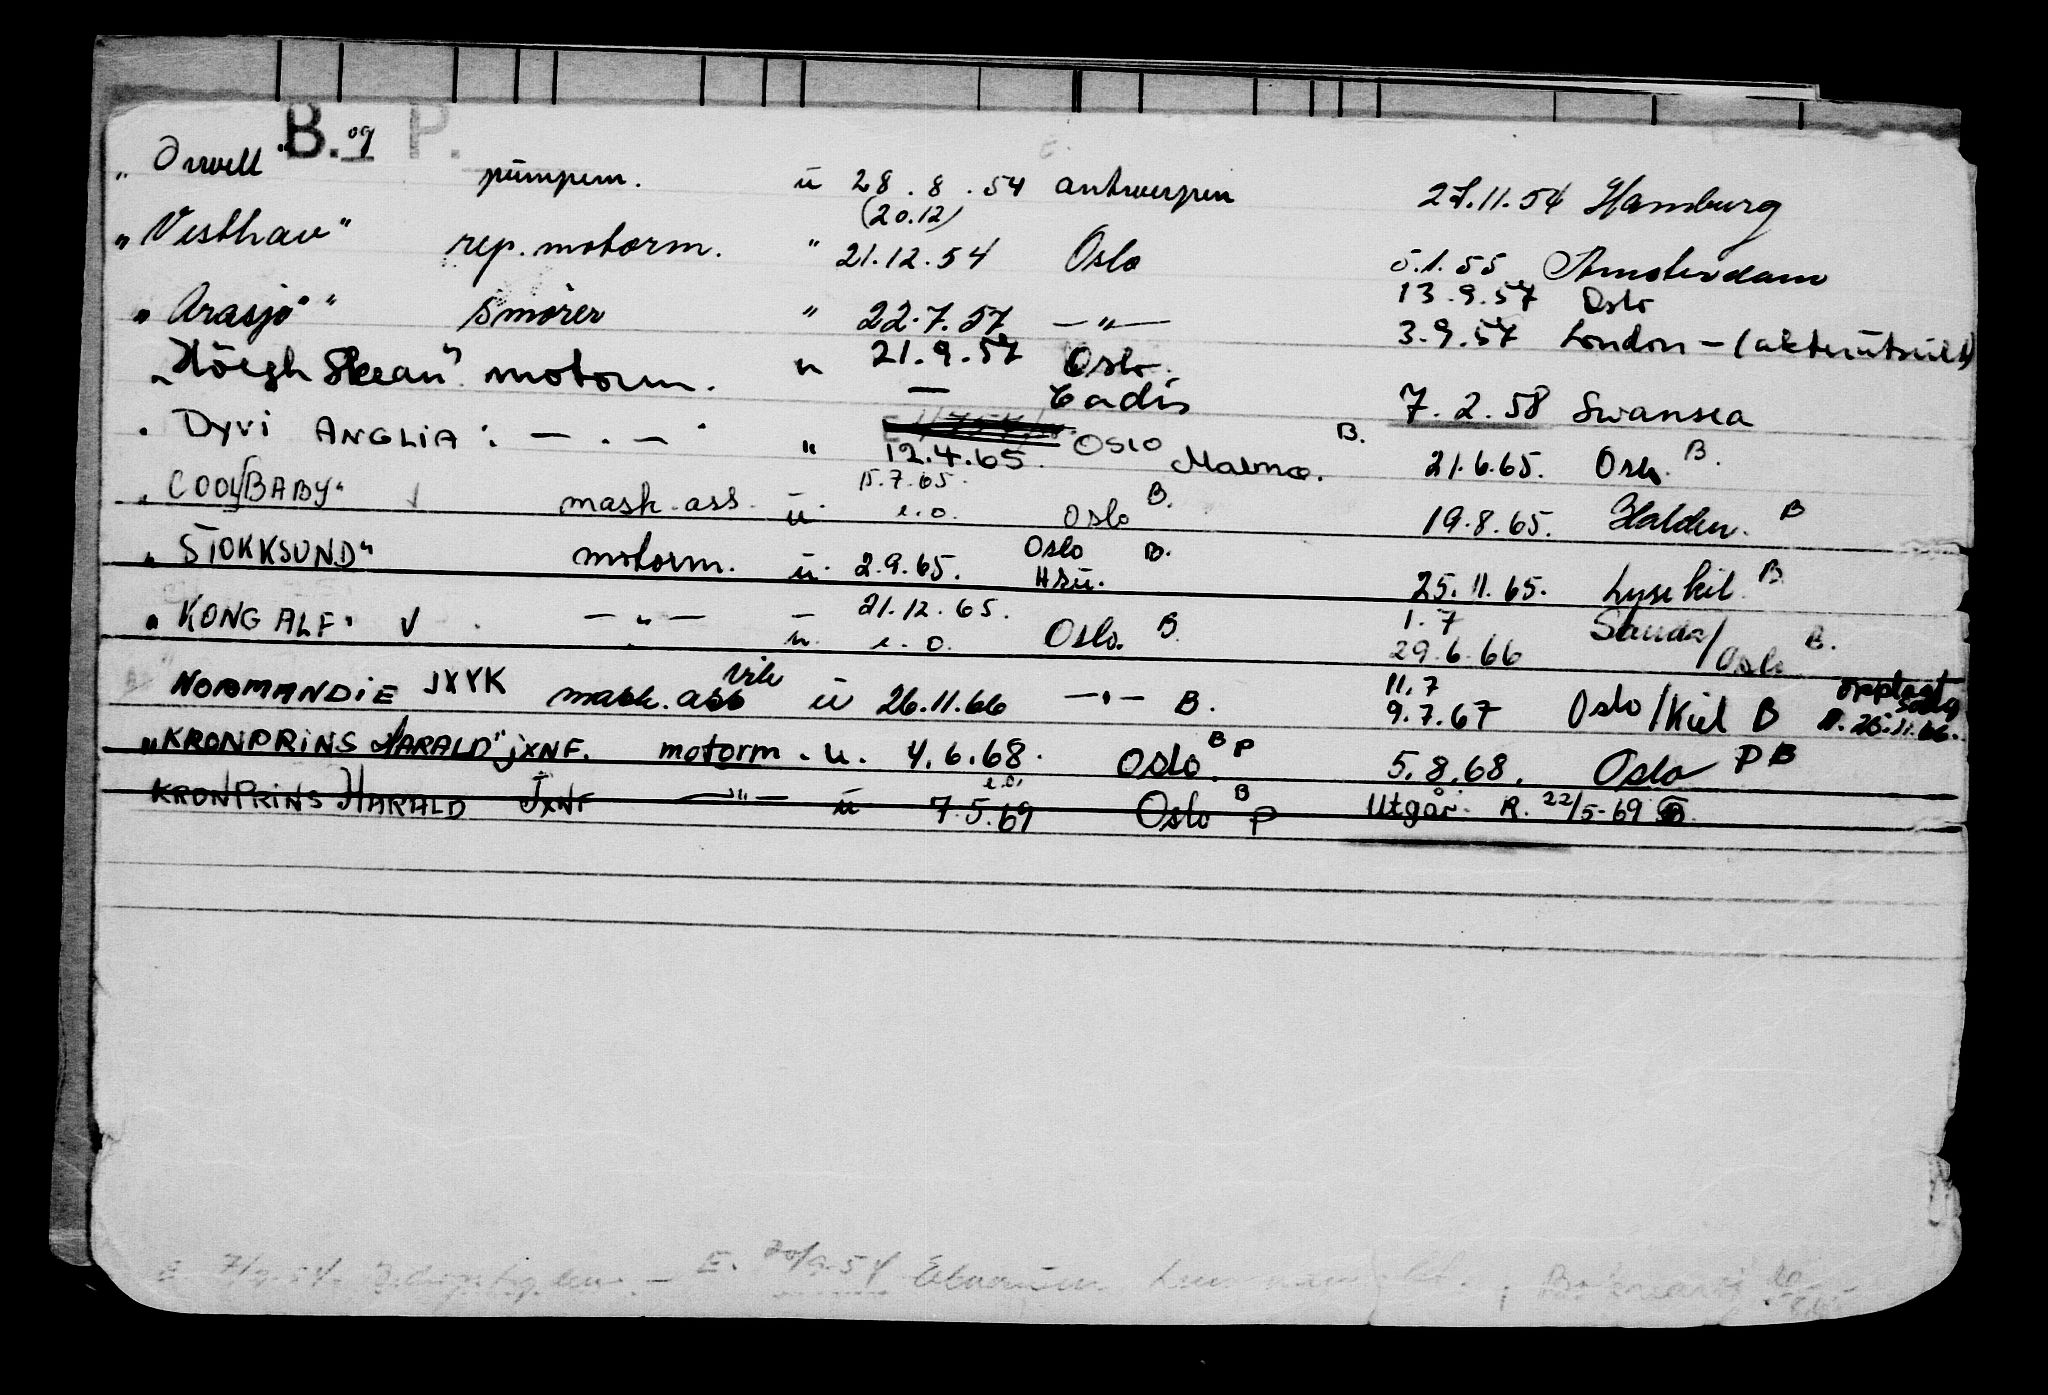 B. og P.
" Orwell " pumpem. u 28.8.54 Antwerpen 27.11.54 Hamburg
(20.12)
" Vesthav " rep. motorm. " 21.12.54 Oslo 5.1.55 Amsterdam
13.9.57 Oslo
" Arasjø " Smører " 22.7.57 — " — 3.9.57 London - (akterutseilt)
" Höegh Skean " motorm. u 21.9.57 Oslo.
— Cadis 7.2.58 Swansea
" Dyvi ANGLIA " — " — " 12.4.65. OSLO Malmø. B. 21.6.65. Oslo. B.
15.7.65.
" COOL BABY " √ mask.ass. u. e.o. Oslo B. 19.8.65. Halden. B
" STOKKSUND " motorm. u. 2.9.65. Oslo Hsu. B. 25.11.65. Lysekil B
21.12.65. 1.7
" KONG ALF " √ — " — u. e.o. Oslo. B 29.6.66 Sauda/Oslo B.
vik 11.7 opplagt
NORMANDIE JXYK mask.ass u 26.11.66 — " — B. 9.7.67 Oslo/Kiel B 25.11.66.
" KRONPRINS HARALD " JXNF. motorm. u. 4.6.68. Oslo. B P 5.8.68. Oslo P B
KRONPRINS HARALD JXNF — " — u e.o. 7.5.69 Oslo B P Utgår. R. 22/5-69
E. 7/9-54. E. 20/9-54